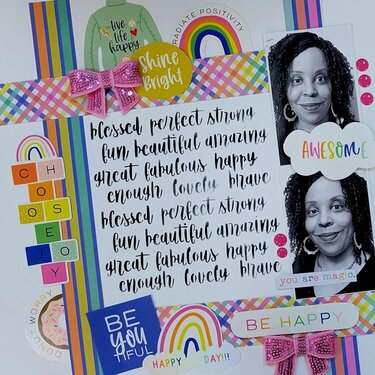 live
life
happy
RADIATE POSITIVITY
Shine
Bright
blessed perfect strong
fun beautiful amazing
great fabulous happy
enough lovely brave
blessed perfect strong
fun beautiful amazing
great fabulous happy
enough lovely brave
AWESOME
CHOOSE JOY
you are magic.
DONUT WORRY
BE
YOU
TIFUL
HAPPY DAY!!!
BE HAPPY